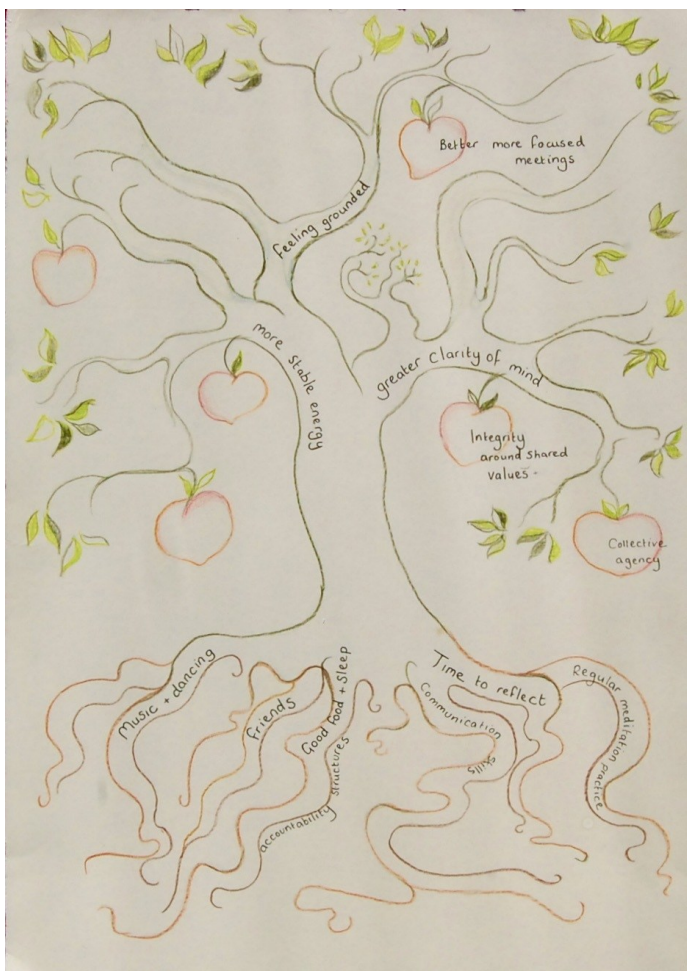 Better more focused
meetings
feeling grounded
more stable energy
greater clarity of mind
Integrity
around shared
values.
Collective
agency
Music + dancing
Friends
Good food + Sleep
accountability structures
Communication
skills
Time to reflect
Regular meditation practice